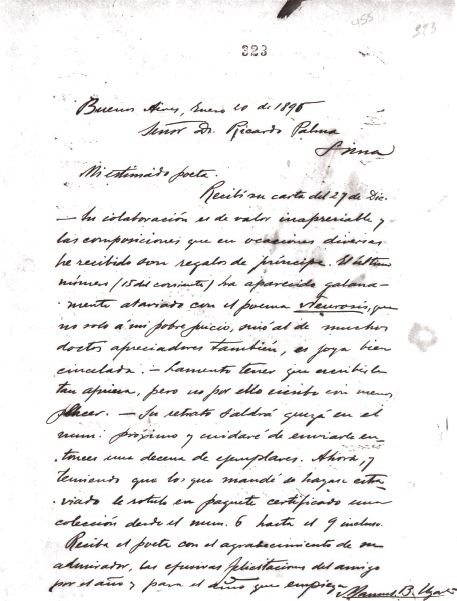 455
393
323
Buenos Aires, Enero 20 de 1896
Señor Dr. Ricardo Palma
Lima
Mi estimado poeta.
Recibí su carta del 27 de Dic.
— Su colaboración es de valor inapreciable y
las composiciones que en ocaciones diversas
he recibido son regalos de príncipe. El último
número (15 del corriente) ha aparecido galana-
mente ataviado con el poema Neurosis, que
no solo á mi pobre juicio, sinó al de muchos
doctos apreciadores también, es joya bien
cincelada. — Lamento tener que escribirle
tan aprisa, pero no por ello escribo con menos
placer. — Su retrato saldrá quizá en el
num. próximo y cuidaré de enviarle en-
tonces una decena de ejemplares. Ahora, y
temiendo que los que mandé se hayan extra-
viado le rotulo en paquete certificado una
colección desde el num. 6 hasta el 9 incluso.
Reciba el poeta con el agradecimiento de su
admirador, las efusivas felicitaciones del amigo
por el año y para el año que empieza
Manuel B. Ugarte